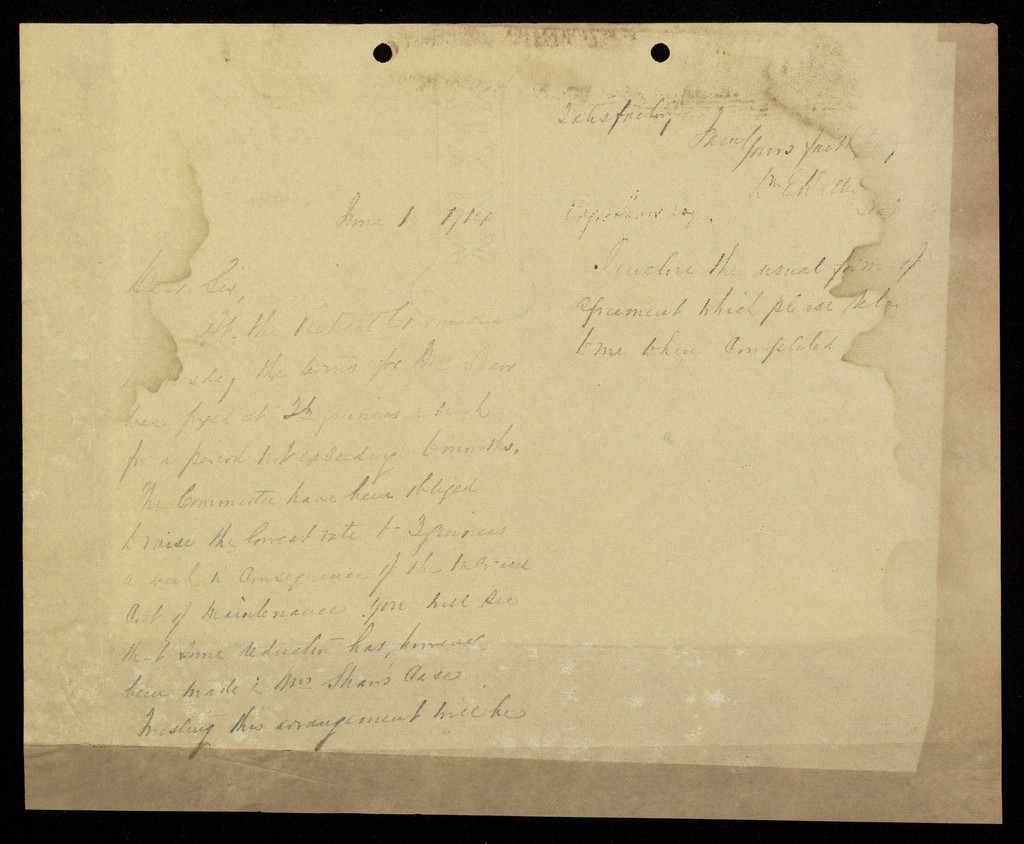 June 1 1914
Dear Sir,
At the Retreat Committee
the terms for Mrs Shaw
been fixed at 2½ guineas a week
for a period not exceeding 6 months.
The Committee have been obliged
to raise the lowest rate to 3 guineas
a week in consequence of the increased
cost of maintenance. You will see
that some reduction has, however
been made in Mrs Shaw's case
Trusting this arrangement will be
satisfactory,
I am yours faithfully,
Shaw Esq.
I enclose the usual form of
agreement which please return
to me when completed